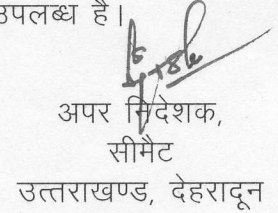 उपलब्ध है।
अपर निदेशक,
सीमैट
उत्तराखण्ड, देहरादून